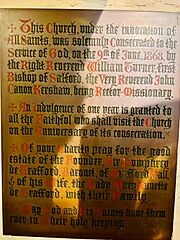 ✠ This Church, under the invocation of
All Saints, was solemnly Consecrated to the
Service of God, on the 9th of June, 1868, by
the Right Reverend William Turner, first
Bishop of Salford, the Very Reverend John
Canon Kershaw, being Rector-Missionary.
✠ An indulgence of one year is granted to
all the Faithful who shall visit the Church
on the Anniversary of its consecration.
✠ Of your Charity pray for the good
estate of the Founder, Sir Humphrey
de Trafford, Baronet, of Trafford Hall
& of his Wife, the Lady Annette
de Trafford, with their Family.
May God and His Saints have them
ever in Their holy keeping.